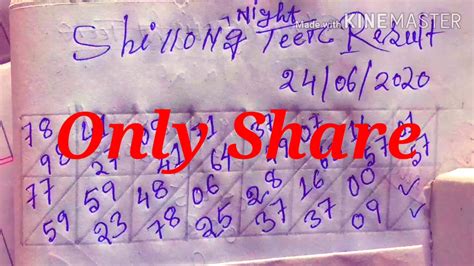 Made with KINEMASTER
Night
Shillong Teer Result
24/06/2020
78 41 71 37 07
Only Share
98 27 41 64 57
77 59 48 06 28 16 00 ✓
59 23 78 25 37 37 09 ✓